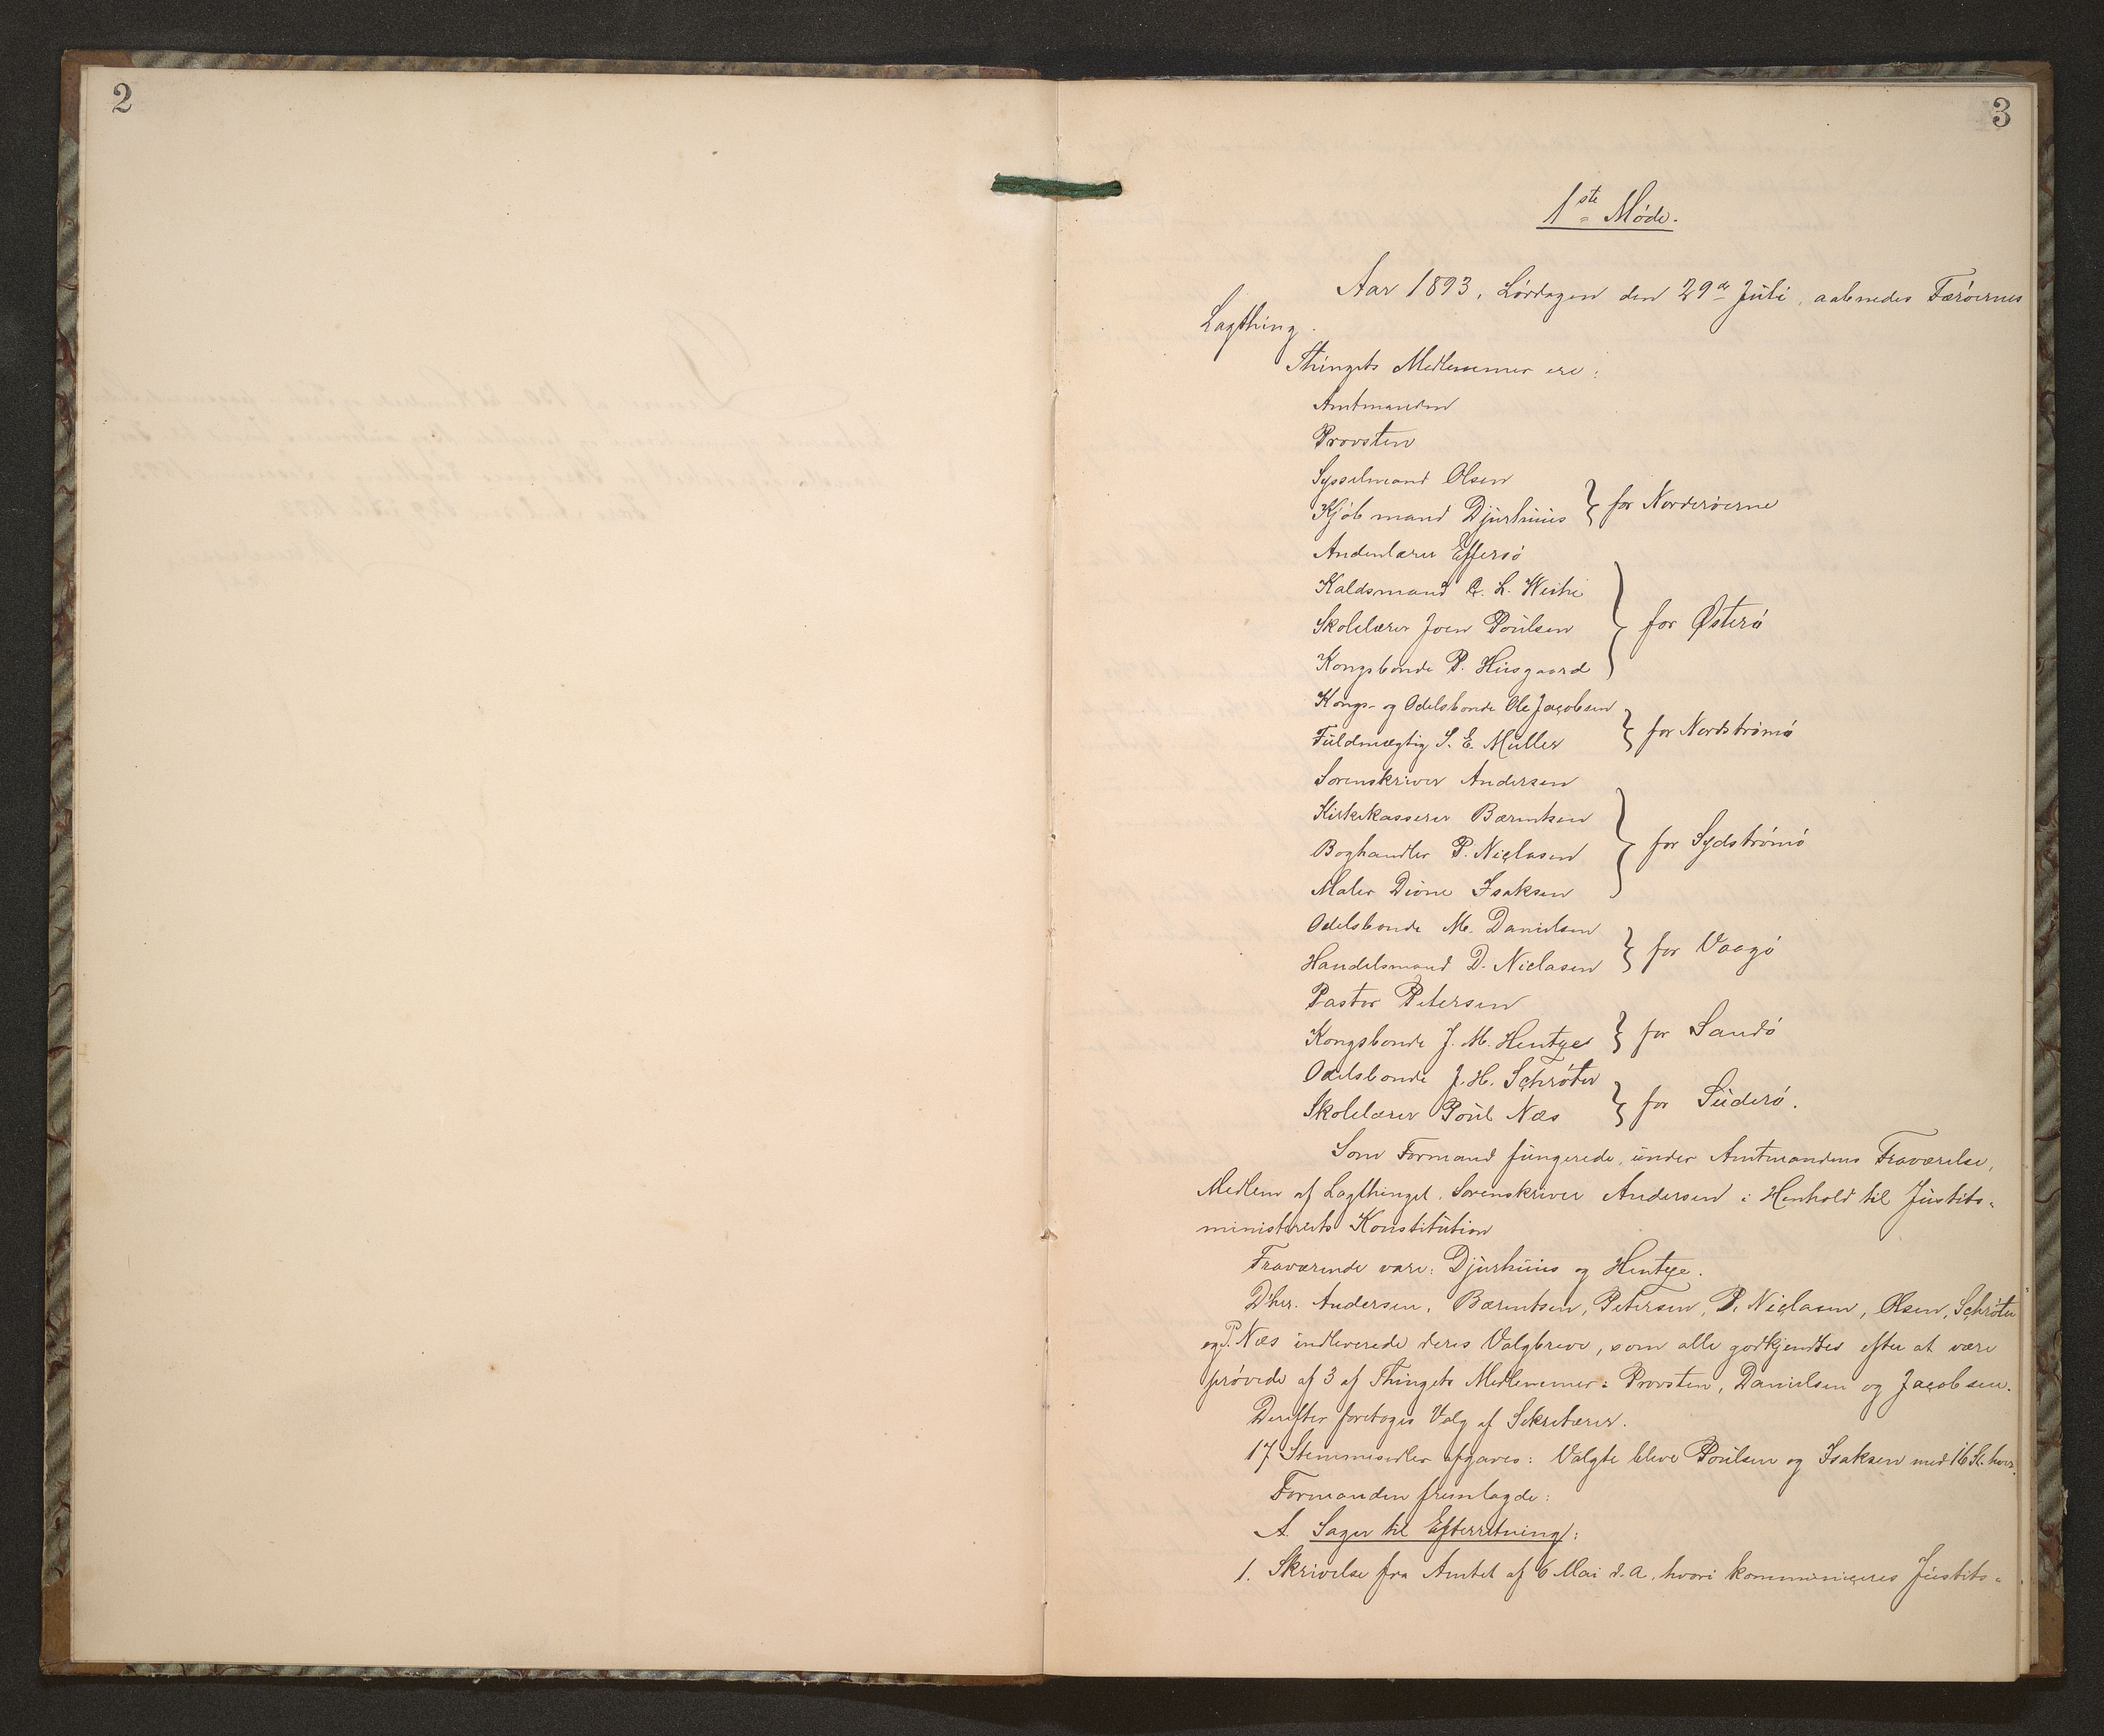 2
3
1ste Møde.
Aar 1893, Lørdagen den 29de Juli, aabnedes Færøernes
Lagthing.
Thingets Medlemmer ere:
Amtmanden
Provsten
Sysselmand Olsen
Kjøbmand Djurhuus } for Norderøerne
Andenlærer Effersö
Kaldsmand C. L. Weihe
Skolelærer Joen Poulsen } for Østerø
Kongsbonde P. Husgaard
Kongs- og Odelsbonde Ole Jacobsen
Fuldmægtig S. E. Müller } for Nordstrømø
Sorenskriver Andersen
Kirkekasserer Bærentsen
Boghandler P. Niclasen } for Sydstrømø
Maler Dione Isaksen
Odelsbonde M. Danielsen
Handelsmand D. Niclasen } for Vaagø
Pastor Petersen
Kongsbonde J. M. Hentze } for Sandø
Odelsbonde J. H. Schrøter
Skolelærer Poul Næs } for Suderø.
Som Formand fungerede, under Amtmandens Fraværelse,
Medlem af Lagthinget, Sorenskriver Andersen i Henhold til Justits-
ministeriets Konstitution
Fraværende vare: Djurhuus og Hentze.
D'hrr. Andersen, Bærentsen, Petersen, P. Niclasen, Olsen, Schrøter
og P. Næs indleverede deres Valgbreve, som alle godkjendtes efter at være
prøvede af 3 af Thingets Medlemmer: Provsten, Danielsen og Jacobsen.
Derefter foretoges Valg af Sekretærer.
17 Stemmesedler afgaves: Valgte bleve Poulsen og Isaksen med 16 St. hver.
Formanden fremlagde:
A. Sager til Efterretning:
1. Skrivelse fra Amtet af 6 Mai d. A. hvori kommuniceres Justits-